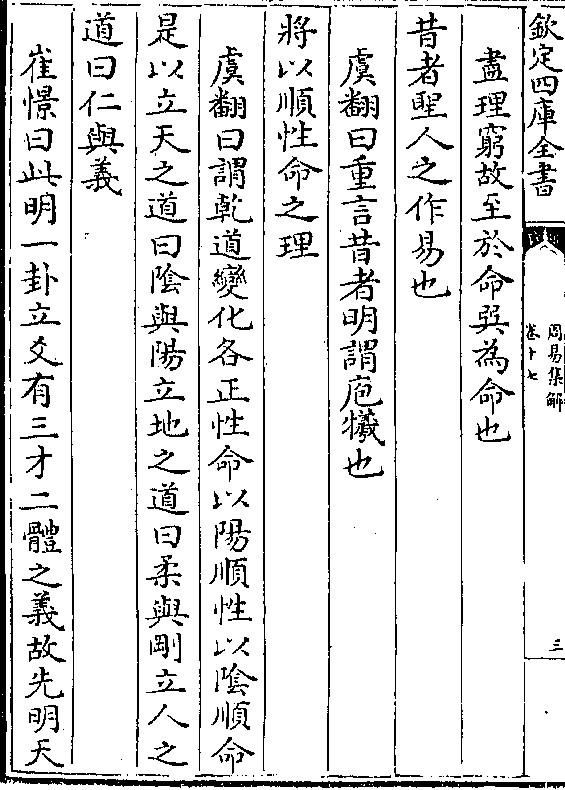 欽定四庫全書
周易集解
卷十七
三
盡理窮故至於命巽為命也
昔者聖人之作易也
虞翻曰重言昔者明謂庖犧也
將以順性命之理
虞翻曰謂乾道變化各正性命以陽順性以陰順命
是以立天之道曰陰與陽立地之道曰柔與剛立人之
道曰仁與義
崔憬曰此明一卦立爻有三才二體之義故先明天